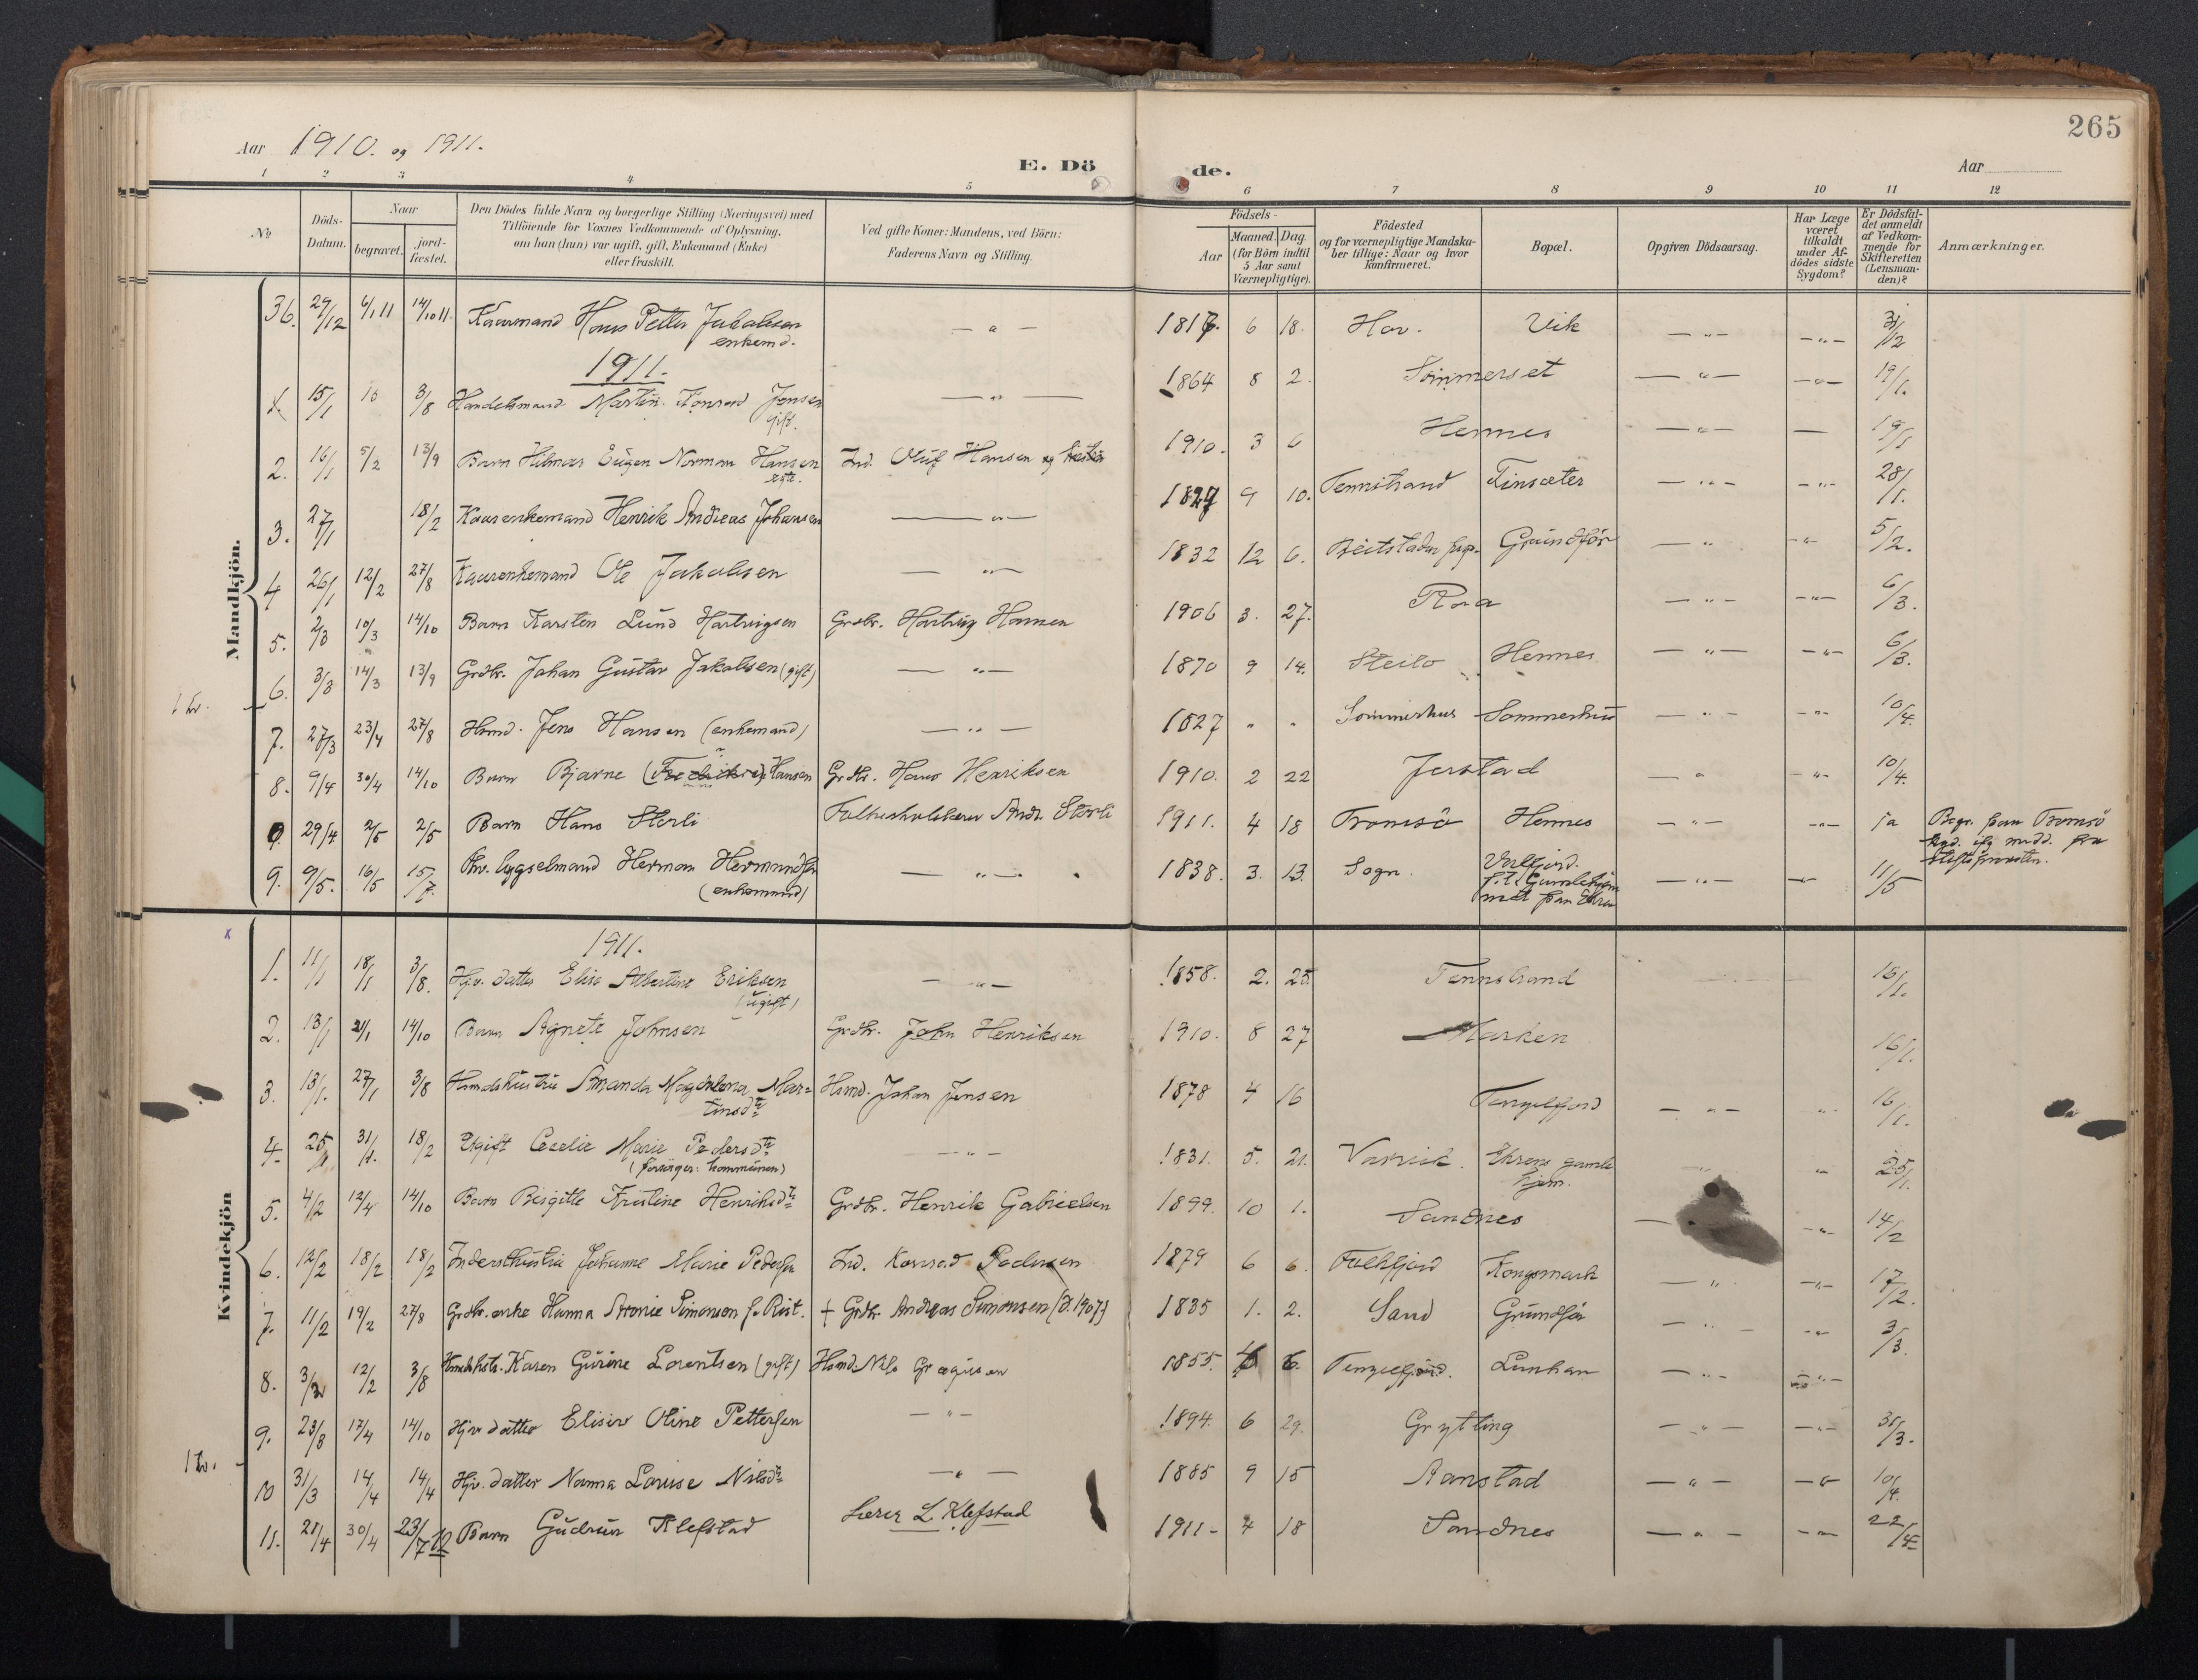 265
Aar 1910. og 1911.
E. Dö de.
Aar
1 2 3 4 5 6 7 8 9 10 11 12
No
Döds-Datum.
Naar
begravet.
jord-fæstet.
Den Dödes fulde Navn og borgerlige Stilling (Næringsvei) med
Tilföiende for Voxnes Vedkommende af Oplysning,
om han (hun) var ugift, gift, Enkemand (Enke)
eller fraskilt.
Ved gifte Koner: Mandens, ved Börn:
Faderens Navn og Stilling.
Födsels-
Aar
Maaned. Dag.
(for Börn indtil
5 Aar samt
Værnepligtige).
Födested
og for værnepligtige Mandska-
ber tillige: Naar og hvor
konfirmeret.
Bopæl.
Opgiven Dödsaarsag.
Har Læge
været
tilkaldt
under Af-
dödes sidste
Sygdom?
Er Dödsfal-
det anmeldt
af Vedkom-
mende for
Skifteretten
(Lensman-
den)?
Anmærkninger.
Mandkjön.
36. 29/12 6/1 11 14/10 11. Kaarmand Hans Petter Jakobsen — " — 6 18. Hov. Vik — " — — " — 31/12
enkemd.
1911.
1. 15/1 3/8 Handelsmand Martin Konrad Jensen — " — 1864 8 2. Sommerset — " — — " — 19/1.
gift.
2. 16/1 5/2 13/9 Barn Hilmar Eugen Norman Hansen Ind. Oluf Hansen og 1910. 3 6 Hennes — " — — 19/1
ægte.
3. 27/1 18/2 Kaarenkemand Henrik Andreas Johansen — " — 9 10. Tennstrand Finsæter — " — — " — 28/1.
4 26/1 12/2 27/8 Kaarenkemand Ole Jakobsen — " — 1832 12 6. Beitstaden Grundför — " — " — 5/2.
5. 2/3 10/3 14/10 Barn Karsten Lund Hartvigsen Grdbr. Hartvig Hansen 1906 3. 27. — " — — " — 6/3.
1 kr. 6. 3/3 14/3 13/9 Grdbr. Johan Gustav Jakobsen (gift) — " — 1870 9 14. Steilo Hennes — " — — " — 6/3.
7. 27/3 23/4 27/8 Hsmd. Jens Hansen (enkemand) — " — 1827 " " Sommerhus Sommerhus — " — — " — 10/4.
8. 9/4 30/4 14/10 Barn Bjarne (Fredrik) Hansen Grdbr. Hans Henriksen 1910. 2 22 Jerstad — " — " — 10/4.
29/4 2/5 2/5 Barn Hans Storli Folkeskolelærer Andr. Storli 1911. 4 18 Tromsö Hennes — " — — " — ja Begr. paa Tromsö
kgd. ifg medd. fra
stiftsprovsten.
9. 9/5. 16/5 15/7. Fhv. bygselmand Herman Hermundsen — " — 1838. 3. 13. Sogn. — " — — " — 11/5
(enkemand) f.t. Gamlehjem
met paa Ehren
Kvindekjön
1911.
1. 11/1 18/1 3/8. Hjv. datter Elise Albertine Eriksen — " — 1858. 2. 25. Tennstrand 16/1.
(ugift)
2. 13/1 21/1 14/10 Barn Agnete Johnsen Grdbr. John Henriksen 1910. 8 27 Marken 16/1.
3. 13/1. 27/1 3/8 Hsmdshustru Amanda Magdalena Mar= Hsmd. Johan Jensen 1878 4 16 Tengelfjord — " — " 16/1.
tinsdtr
4. 25/1 31/1. 18/2 Ugift Cecelie Marie Pedersdtr — " — 1831. 5. 21. Varvik. Ehrens gamle " 25/1.
(forsörges: kommunen) hjem.
5. 4/2 12/4 14/10 Barn Birgitte Kristine Henriksdtr Grdbr. Henrik Gabrielsen 1899. 10 1. Sandnes — " — 14/2
6. 12/2 18/2 18/2 Indersthustru Johanne Marie Pedersen Ind. Konrad Pedersen 1879 6 6. Falkfjord Kongsmark — " — " — 17/2.
7. 11/2 19/2 27/8 Grdbr. enke Hanna Aronie Simonsen f. Rist. + Grdbr. Andreas Simonsen (d. 1907) 1835 1. 2. Sand Grundför — " — — " — 3/3.
8. 12/2 3/8 Hsmdshstr. Karen Gurine Lorentsen (gift) Hsmd. Nils Gregusen 1855. 6. Tengelfjord. Lunhan — " — — " —
9. 23/3 17/4 14/10 Hjv. datter Elisiv Oline Pettersen — " — 1894. 6 29. Grytting — " — — " — 31/3.
1 kr. 10 31/3 14/4 14/4 Hjv. datter Norma Lovise Nilsdtr — " — 1885 9 15 Aanstad — " — — " — 10/4.
11. 21/4 30/4 23/7 12 Barn Gudrun Klefstad Lærer L. Klefstad 1911 - 4 18 Sandnes — " — — " — 22/4